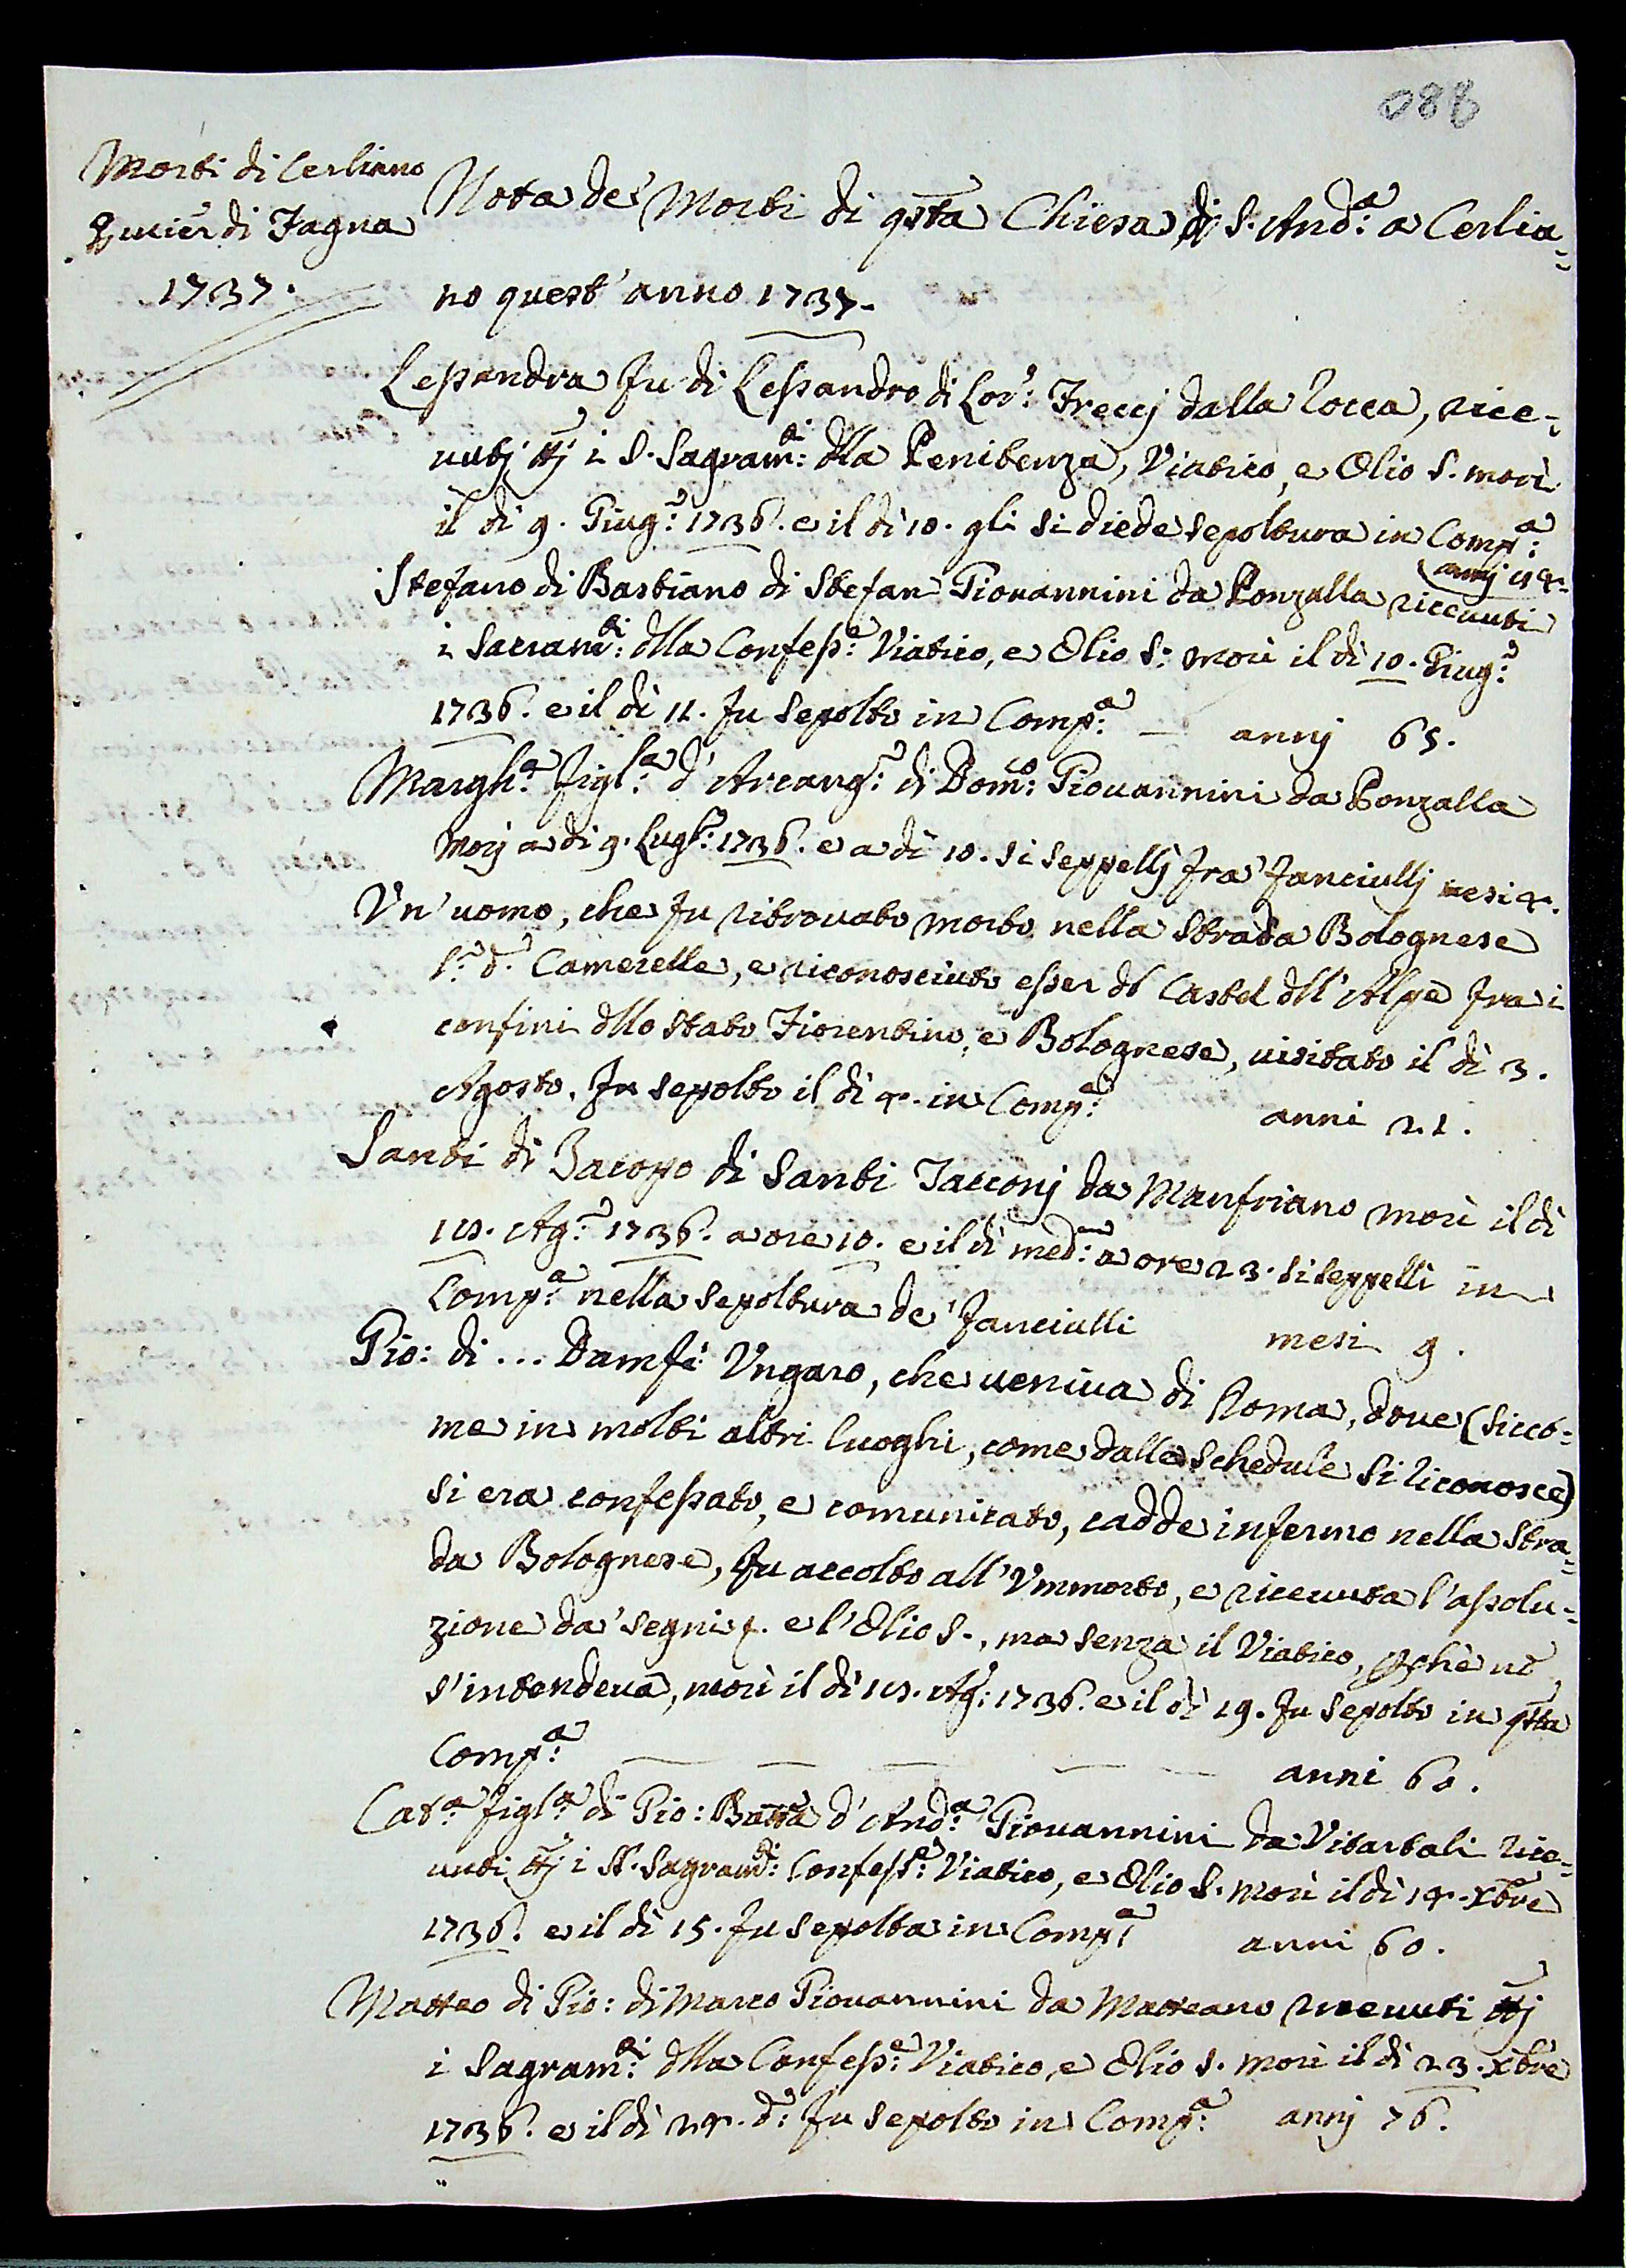 088
Morti di Cerliano
di Fagna
1737.
Nota de' Morti di qsta Chiesa di S. And:ª a Cerlia=
no quest' anno 1737.
Lessandra fu di Lessandro di Lor:º Freccj dalla Rocca, rice=
vutj ttj i S. Sagram:ti dlla Penitenza, Viatico, e Olio S. morì
il dì 9. Giug:º 1736. e il dì 10. gli si diede sepoltura in Comp:ª
annj
Stefano di Bastiano di Stefan Giovannini da Ponzalla ricevuti
i Sacram:ti dlla Confess:e Viatico, e Olio S: morì il dì 10. Giug:º
1736. e il dì 11. fu sepolto in Comp:ª — annj 65.
Margh:ª figl:ª d' Arcang:º di Dom:co Giovannini da Ponzalla
morj a dì 9. Lugl:º 1736. e a dì 10. si seppellj fra' fanciullj mesi 4.
Un' uomo, che fu ritrovato morto nella strada Bolognese
l:º d:º Camerelle, e riconosciuto esser dl Castel dll' Alpe fra i
confini dllo stato Fiorentino, e Bolognese, visitato il dì 3.
Agosto, fu sepolto il dì 4. in Comp:ª anni 21.
Santi di Jacopo di Santi Jacconj da Manfriano morì il dì
18. Ag:º 1736. a ore 10. e il dì med:mo a ore 23. si seppellì in
Comp:ª nella sepoltura de' fanciulli mesi 9.
Gio: di ... Damfi Ungaro, che veniva di Roma, dove (sicco=
me in molti altri luoghi, come dalle schedule si riconosce)
si era confessato, e comunicato, cadde infermo nella stra=
da Bolognese, fu accolto all' Vmmorto, e ricevuta l' assolu=
zione da' segni p. e l' Olio S., ma senza il Viatico, pchè nō
s' intendeva, morì il dì 18. Ag: 1736. e il dì 19. fu sepolto in qsta
Comp:ª — — — — — anni 60.
Cat:ª figl:ª di Gio: Batta d' And:ª Giovannini da Vitartali rice=
vuti ttj i SS. Sagram:ti Confess:e Viatico, e Olio S. morì il dì 14. Xbre
1736. e il dì 15. fu sepolta in Comp:ª anni 60.
Matteo di Gio: di Marco Giovannini da Matteano ricevuti ttj
i Sagram:ti dlla Confess:e Viatico, e Olio S. morì il dì 23. Xbre
1736. e il dì 24. d:º fu sepolto in Comp:ª annj 76.